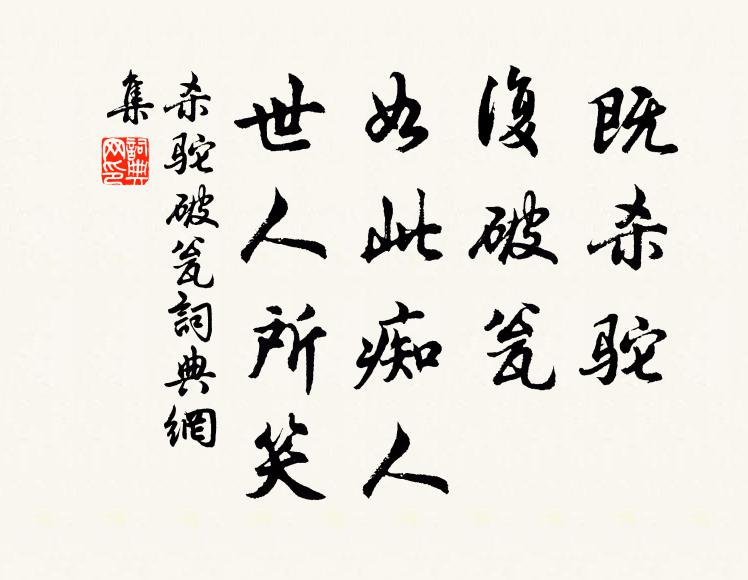 既杀驼
復破瓮
如此痴人
世人所笑
杀驼破瓮詞典網
集
詞典
网印